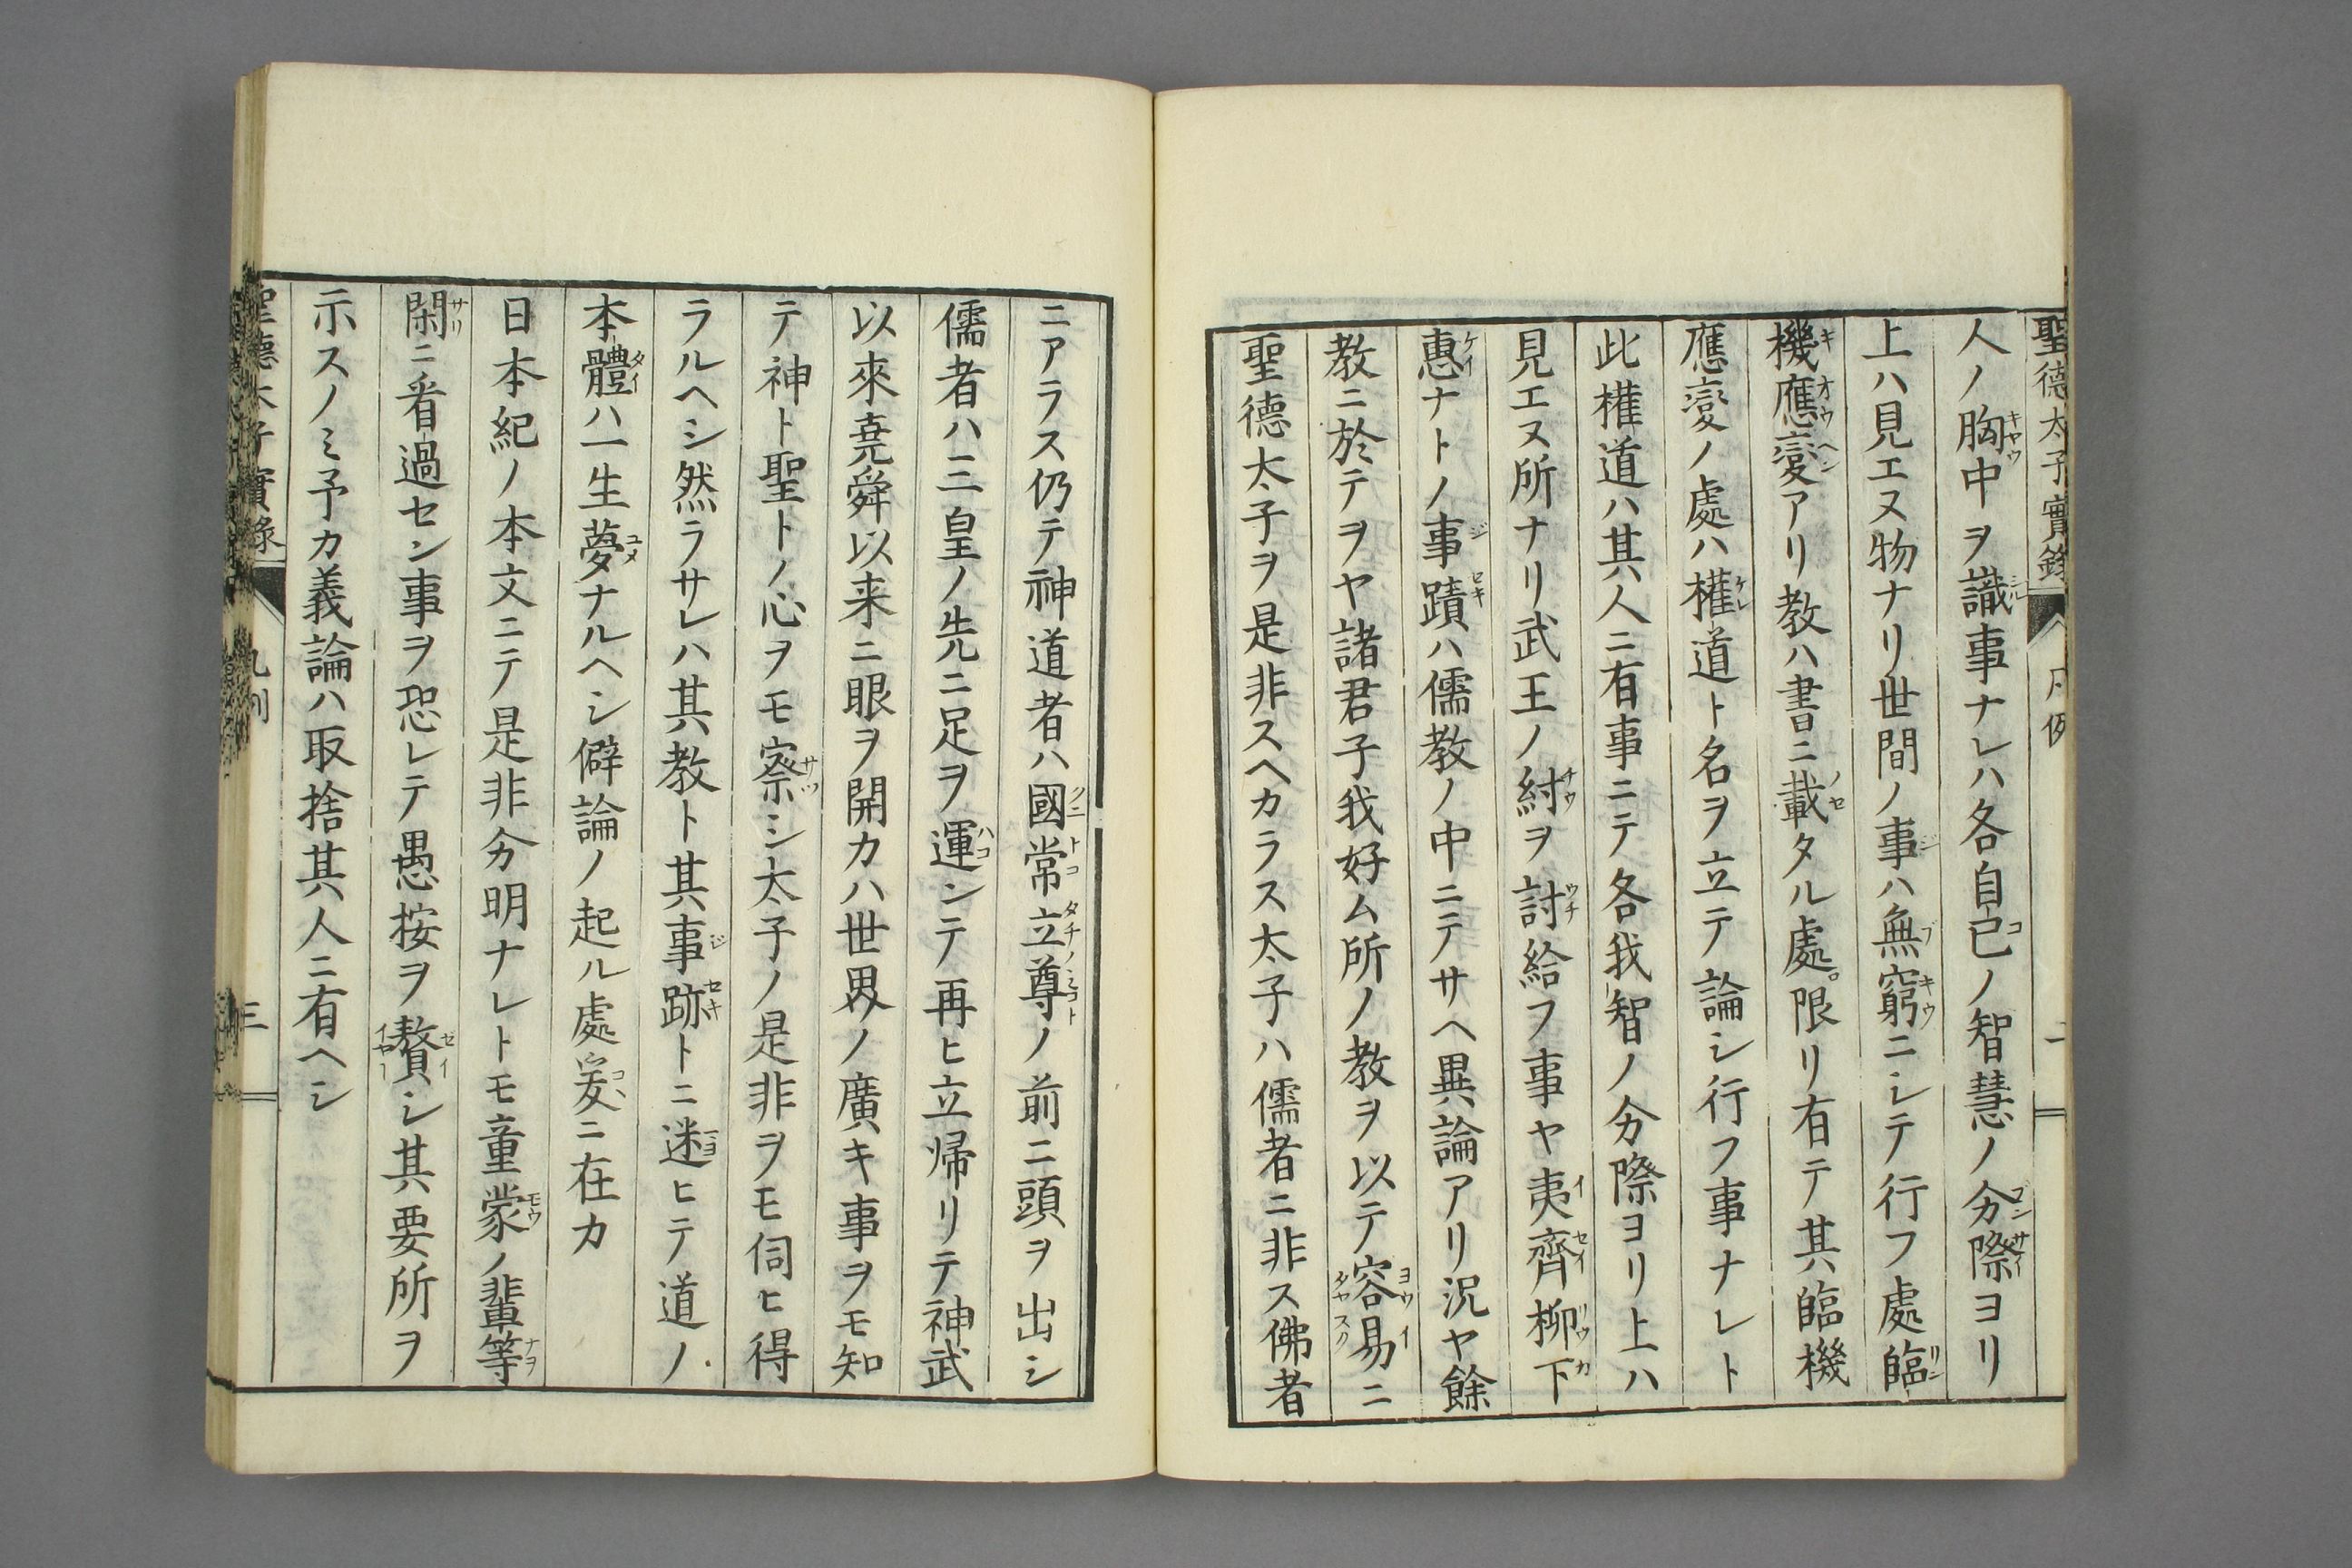 聖德太子實錄
凡例
二
人ノ胸中ヲ識事ナレハ各自己ノ智慧ノ分際ヨリ
上ハ見エヌ物ナリ世間ノ事ハ無窮ニシテ行フ處臨
機應變アリ教ハ書ニ載タル處限リ有テ其臨機
應變ノ處ハ權道ト名ヲ立テ論シ行フ事ナレト
此權道ハ其人ニ有事ニテ各我智ノ分際ヨリ上ハ
見エヌ所ナリ武王ノ紂ヲ討給フ事ヤ夷齊柳下
惠ナトノ事蹟ハ儒教ノ中ニテサヘ異論アリ況ヤ餘
教ニ於テヲヤ諸君子我好ム所ノ教ヲ以テ容易ニ
聖德太子ヲ是非スヘカラス太子ハ儒者ニ非ス佛者
ニアラス仍テ神道者ハ國常立尊ノ前ニ頭ヲ出シ
儒者ハ三皇ノ先ニ足ヲ運ンテ再ヒ立帰リテ神武
以來堯舜以来ニ眼ヲ開カハ世界ノ廣キ事ヲモ知
テ神ト聖トノ心ヲモ察シ太子ノ是非ヲモ伺ヒ得
ラルヘシ然ラサレハ其教ト其事跡トニ迷ヒテ道ノ
本體ハ一生夢ナルヘシ僻論ノ起ル處爰ニ在カ
日本紀ノ本文ニテ是非分明ナレトモ童蒙ノ輩等
閑ニ看過セン事ヲ恐レテ愚按ヲ贅シ其要所ヲ
示スノミ予カ義論ハ取捨其人ニ有ヘシ
聖德太子實錄
凡例
三